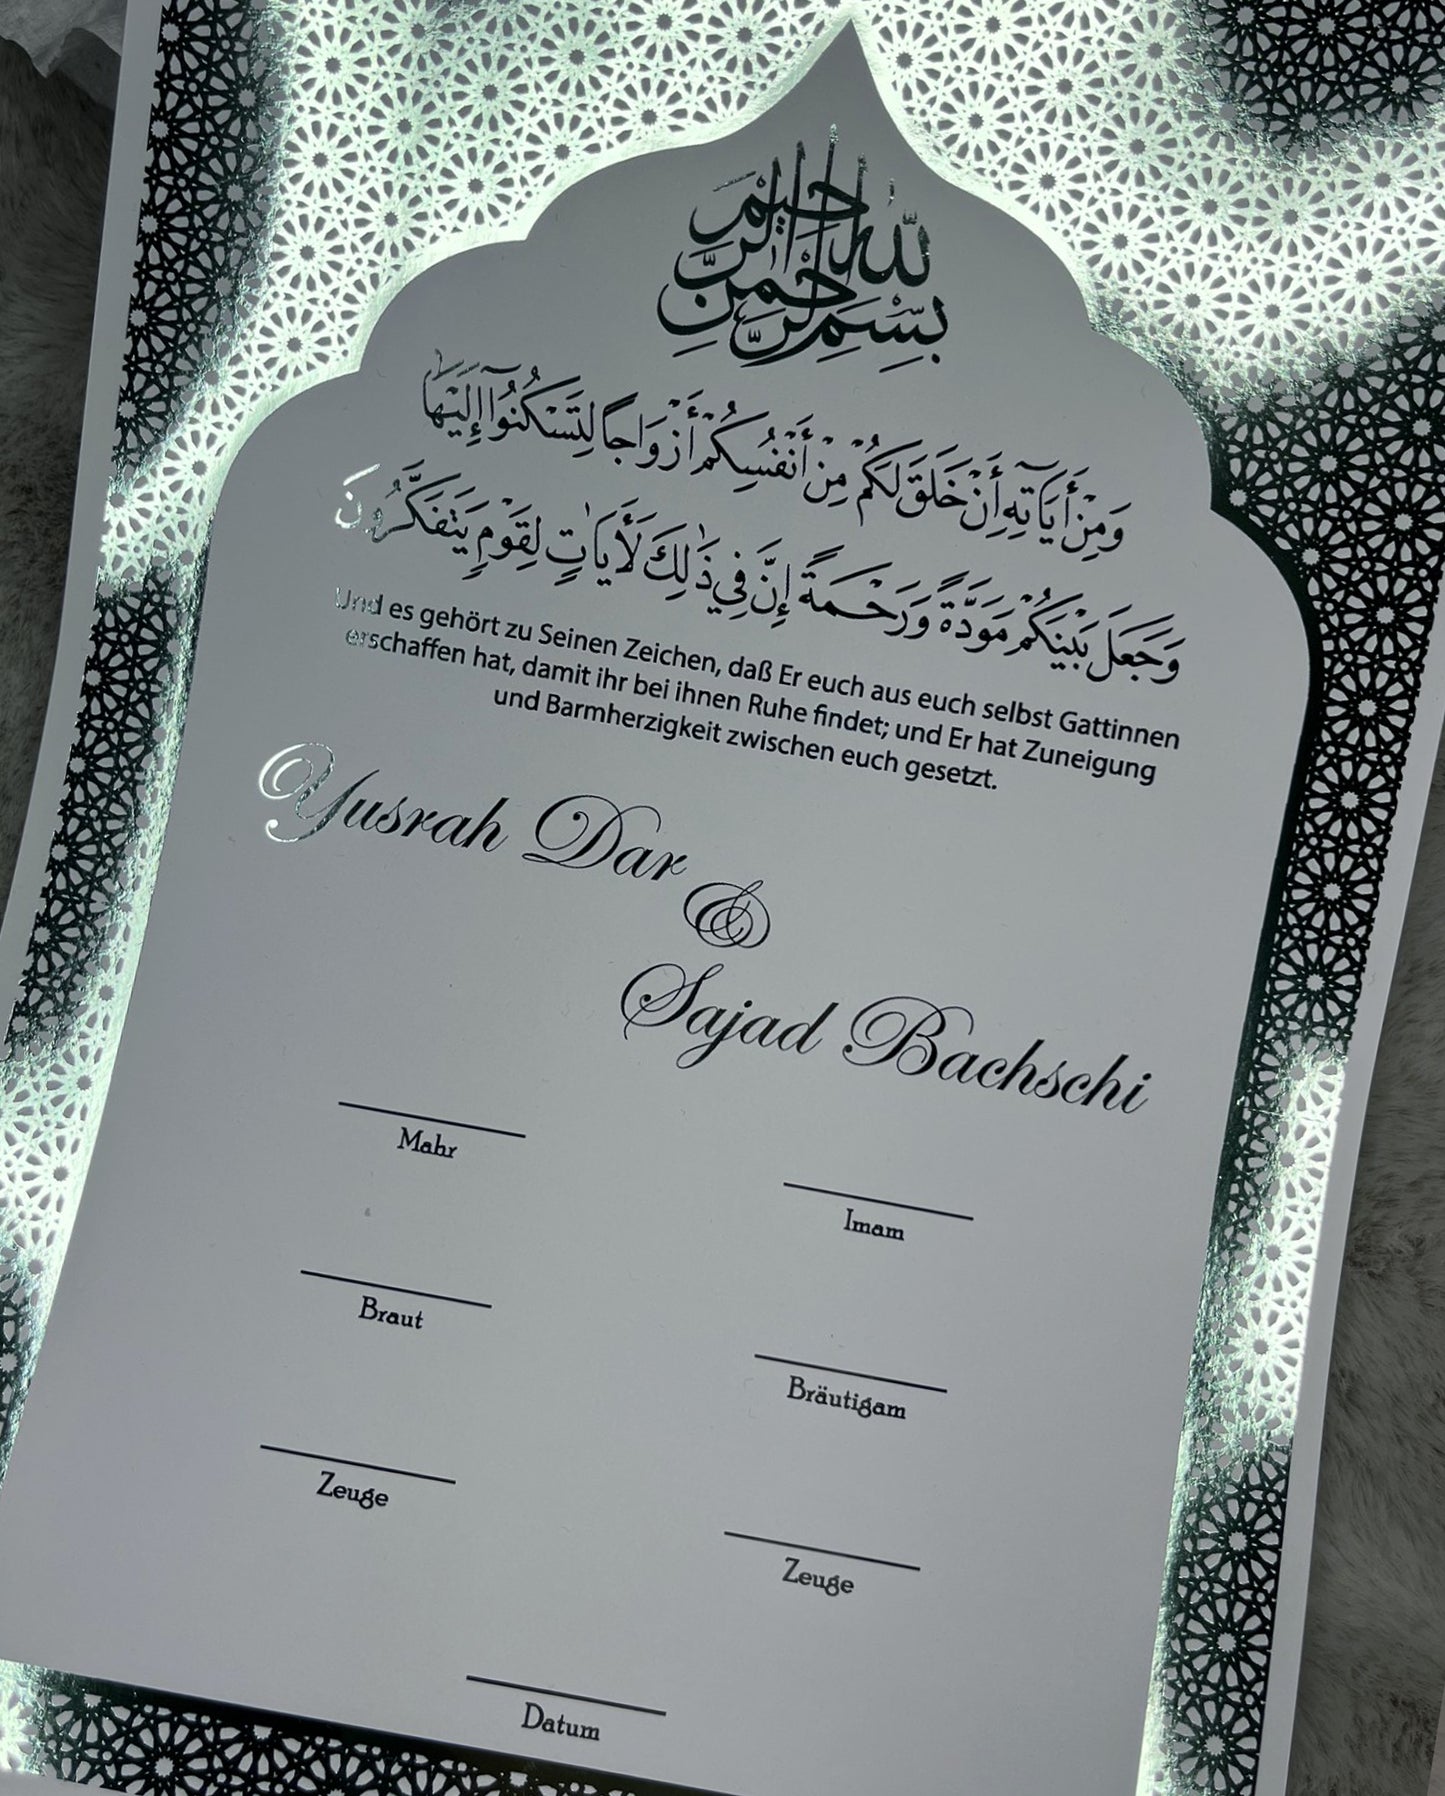 بِسْمِ اللهِ الرَّحْمٰنِ الرَّحِيْمِ
وَمِنْ أَيَاتِهِ أَنْ خَلَقَ لَكُمْ مِنْ أَنْفُسِكُمْ أَزْوَاجًا لِتَسْكُنُوٓا إِلَيْهَا
وَجَعَلَ بَيْنَكُمْ مَوَدَّةً وَرَحْمَةً إِنَّ فِي ذٰلِكَ لَأَيَاتٍ لِقَوْمٍ يَتَفَكَّرُونَ
Und es gehört zu Seinen Zeichen, daß Er euch aus euch selbst Gattinnen
erschaffen hat, damit ihr bei ihnen Ruhe findet; und Er hat Zuneigung
und Barmherzigkeit zwischen euch gesetzt.
Yusrah Dar
&
Sajad Bachschi
Mahr
Imam
Braut
Bräutigam
Zeuge
Zeuge
Datum